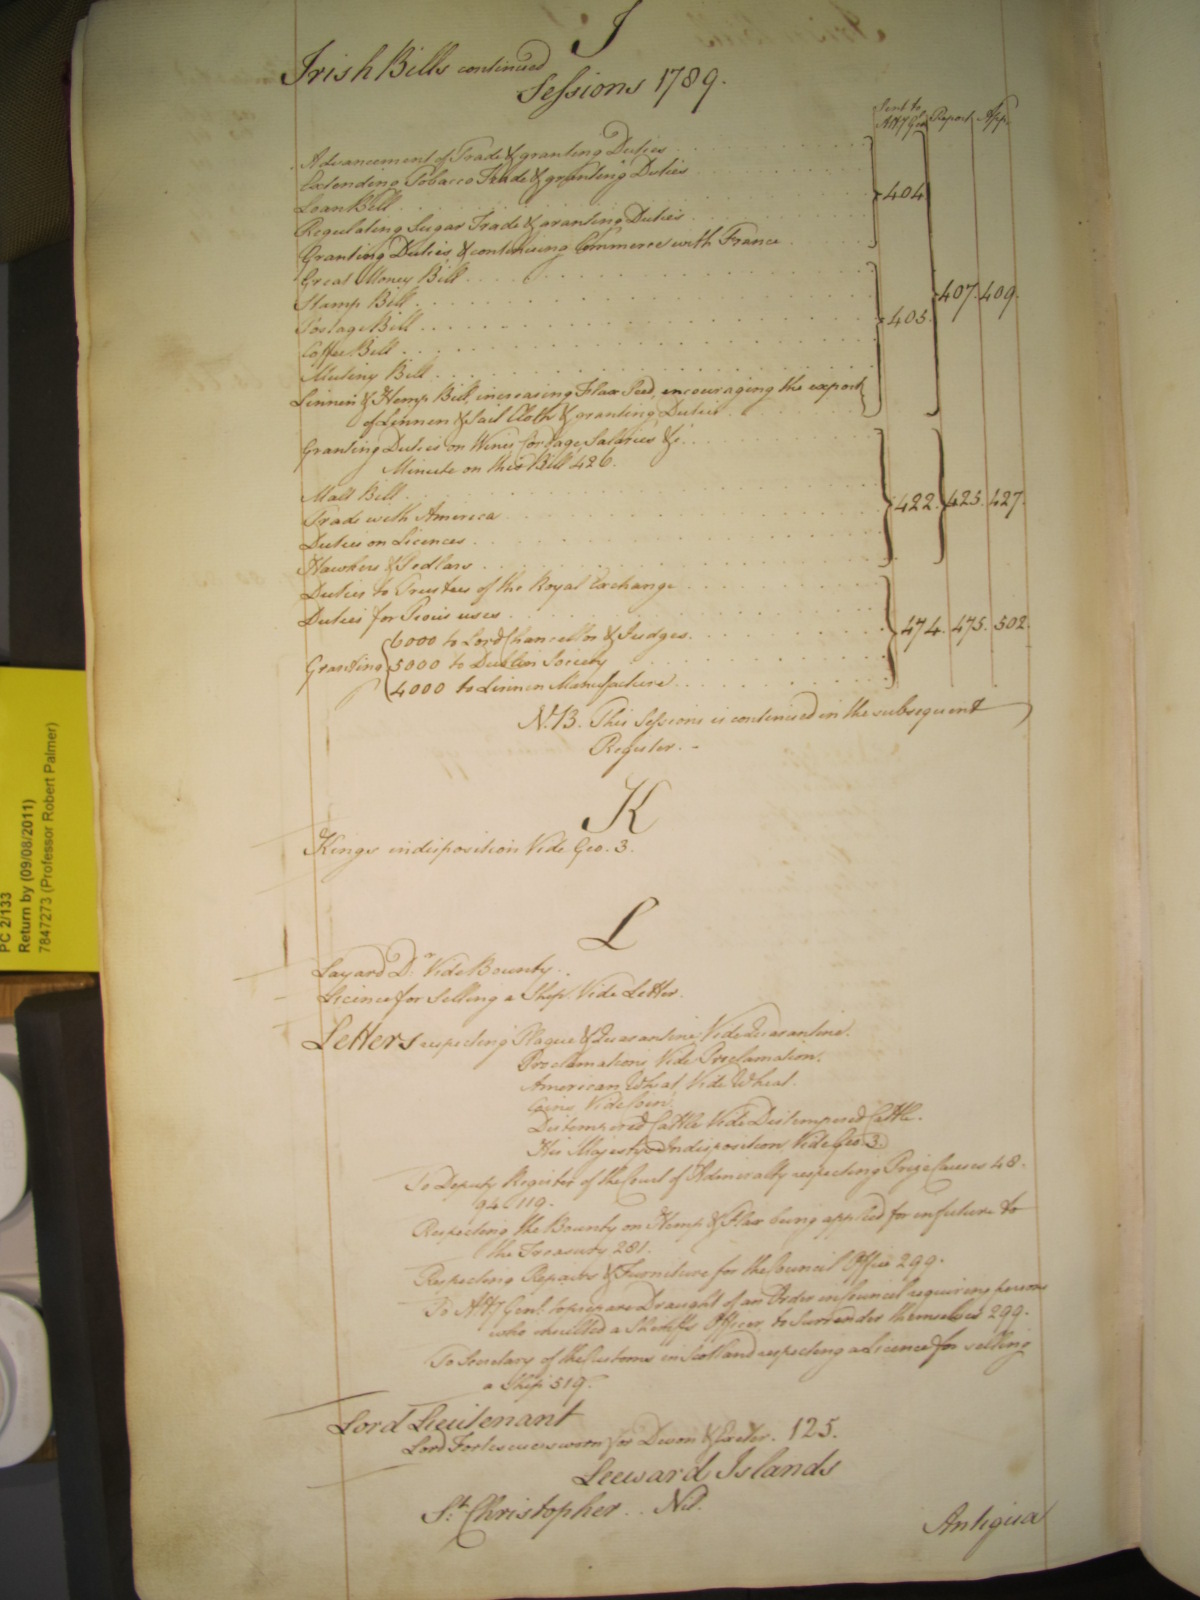 I
Irish Bills continued
Sessions 1789.
Sent to Atty Genl Report App.
Advancement of Trade & granting Duties
Extending Tobacco Trade & granting Duties
Loan Bill
Regulating Sugar Trade & granting Duties
404
Granting Duties & continuing Commerce with France
Great Money Bill
Stamp Bill
407. 409.
Postage Bill
405.
Coffee Bill
Mutiny Bill
Linnen & Hemp Bill, increasing Flax Seed, encouraging the export
of Linnen & Sail Cloth & granting Duties
Granting Duties on Wines, Cordage Salaries &c.
Minute on this Bill 426.
Malt Bill
Trade with America
422. 425. 427.
Duties on Licences
Hawkers & Pedlars
Duties to Trustees of the Royal Exchange
Duties for Pious uses
Granting
6000 to Lord Chancellor & Judges.
5000 to Dublin Society
4000 to Linnen Manufacture
474. 475. 502.
N.B. This Sessions is continued in the subsequent
Register. -
K
Kings indisposition Vide Geo. 3.
L
Layard Dr. Vide Bounty.
Licence for Selling a Ship. Vide Letter.
Letters respecting Plague & Quarantine Vide Quarantine.
Proclamations, Vide Proclamation.
American Wheat, Vide Wheat.
Coins, Vide Coin.
Distempered Cattle Vide Distempered Cattle.
His Majestys Indisposition Vide Geo. 3.
To Deputy Register of the Court of Admiralty respecting Prize Causes 48.
94. 119.
Respecting the Bounty on Hemp & Flax being applied for in future to
the Treasury 281.
Respecting Repairs & Furniture for the Council Office 299.
To Atty Genl. to prepare Draught of an Order in Council requiring persons
who insulted a Sheriffs Officer, to Surrender themselves 299.
To Secretary of the Customs in Scotland respecting a Licence for selling
a Ship 519.
Lord Lieutenant
Lord Fortescue sworn for Devon & Exeter. 125.
Leeward Islands
St. Christopher. . Nil.
Antigua
PC 2/133
Return by (09/08/2011)
7847273 (Professor Robert Palmer)